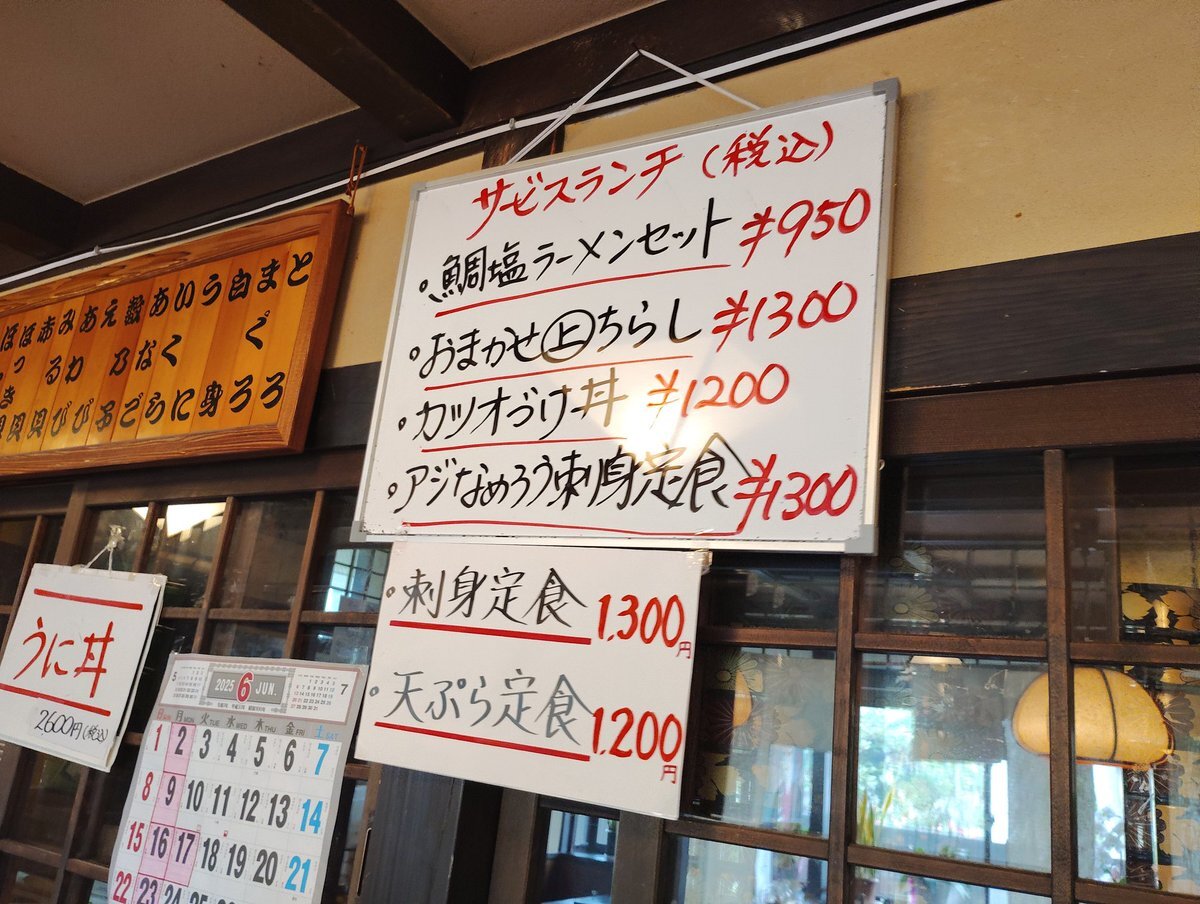 サービスランチ (税込)
・鯛塩ラーメンセット ¥950
・おまかせ㊤ちらし ¥1300
・カツオづけ丼 ¥1200
・アジなめろう刺身定食 ¥1300
・刺身定食 1,300円
・天ぷら定食 1,200円
とろ
まぐろ
白身
うに
いくら
あなご
数乃子
えび
あわび
みる貝
赤貝
うに丼
2600円(税込)
5 2025 6 JUN. 7
日 月 MON 火 TUE 水 WED 木 THU 金 FRI 土 SAT
1 2 3 4 5 6 7
8 9 10 11 12 13 14
15 16 17 18 19 20 21
22 23 24 25 26 27 28